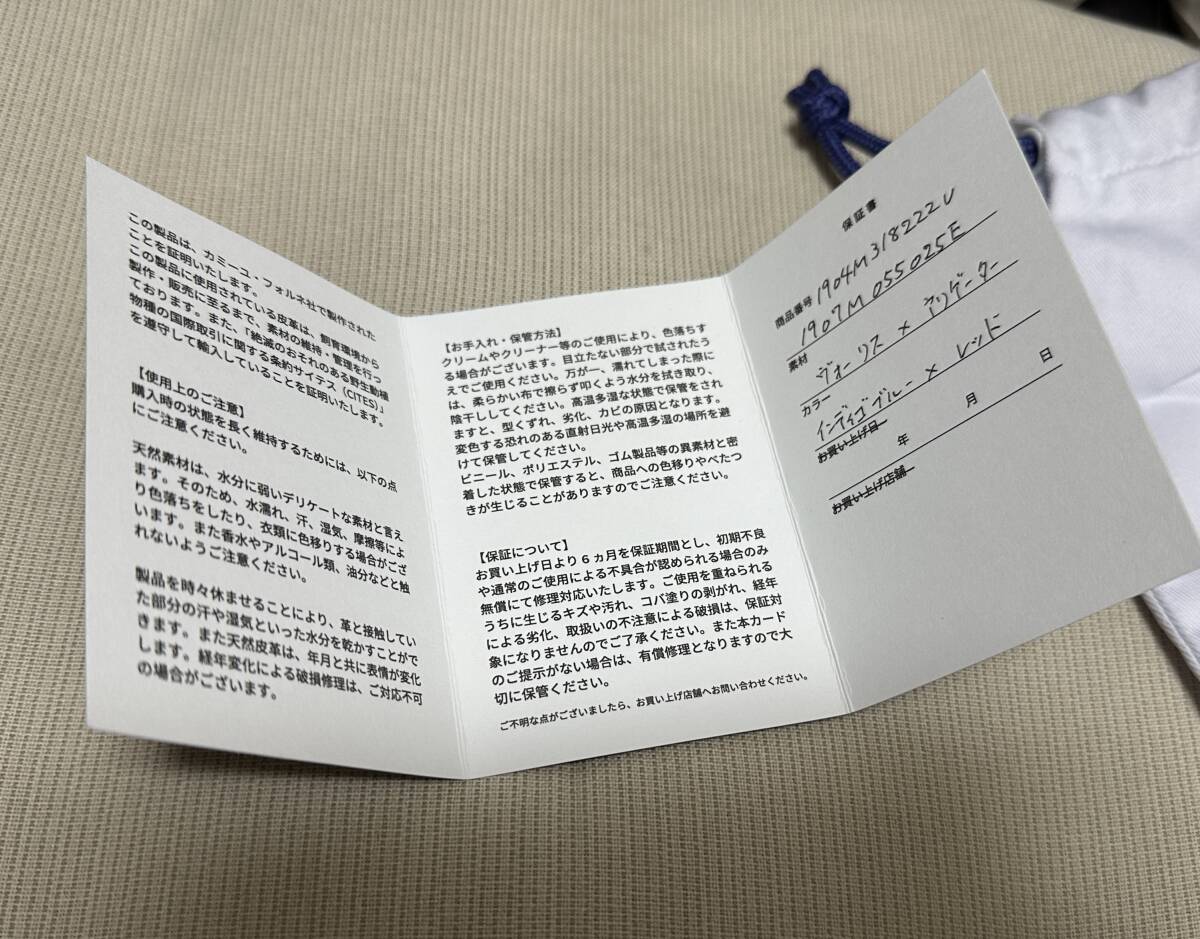 この製品は、カミーユ・フォルネ社で製作された
ことを証明いたします。
この製品に使用されている皮革は、飼育環境から
製作・販売に至るまで、素材の維持・管理を行っ
ております。また、「絶滅のおそれのある野生動植
物種の国際取引に関する条約サイテス（CITES）」
を遵守して輸入していることを証明いたします。
【使用上のご注意】
購入時の状態を長く維持するためには、以下の点
にご注意ください。
天然素材は、水分に弱いデリケートな素材と言え
ます。そのため、水濡れ、汗、湿気、摩擦等によ
り色落ちをしたり、衣類に色移りする場合がござ
います。また香水やアルコール類、油分などと触
れないようご注意ください。
製品を時々休ませることにより、革と接触してい
た部分の汗や湿気といった水分を乾かすことがで
きます。また天然皮革は、年月と共に表情が変化
します。経年変化による破損修理は、ご対応不可
の場合がございます。
【お手入れ・保管方法】
クリームやクリーナー等のご使用により、色落ちす
る場合がございます。目立たない部分で試されたう
えでご使用ください。万が一、濡れてしまった際に
は、柔らかい布で擦らず叩くよう水分を拭き取り、
陰干ししてください。高温多湿な状態で保管をされ
ますと、型くずれ、劣化、カビの原因となります。
変色する恐れのある直射日光や高温多湿の場所を避
けて保管してください。
ビニール、ポリエステル、ゴム製品等の異素材と密
着した状態で保管すると、商品への色移りやべたつ
きが生じることがありますのでご注意ください。
【保証について】
お買い上げ日より6ヵ月を保証期間とし、初期不良
や通常のご使用による不具合が認められる場合のみ
無償にて修理対応いたします。ご使用を重ねられる
うちに生じるキズや汚れ、コバ塗りの剥がれ、経年
による劣化、取扱いの不注意による破損は、保証対
象になりませんのでご了承ください。また本カード
のご提示がない場合は、有償修理となりますので大
切に保管ください。
ご不明な点がございましたら、お買い上げ店舗へお問い合わせください。
保証書
商品番号 1904M318222U
1907M055025E
素材
ヴォーリス×アリゲーター
カラー
インディゴブルー×レッド
お買い上げ日
年 月 日
お買い上げ店舗